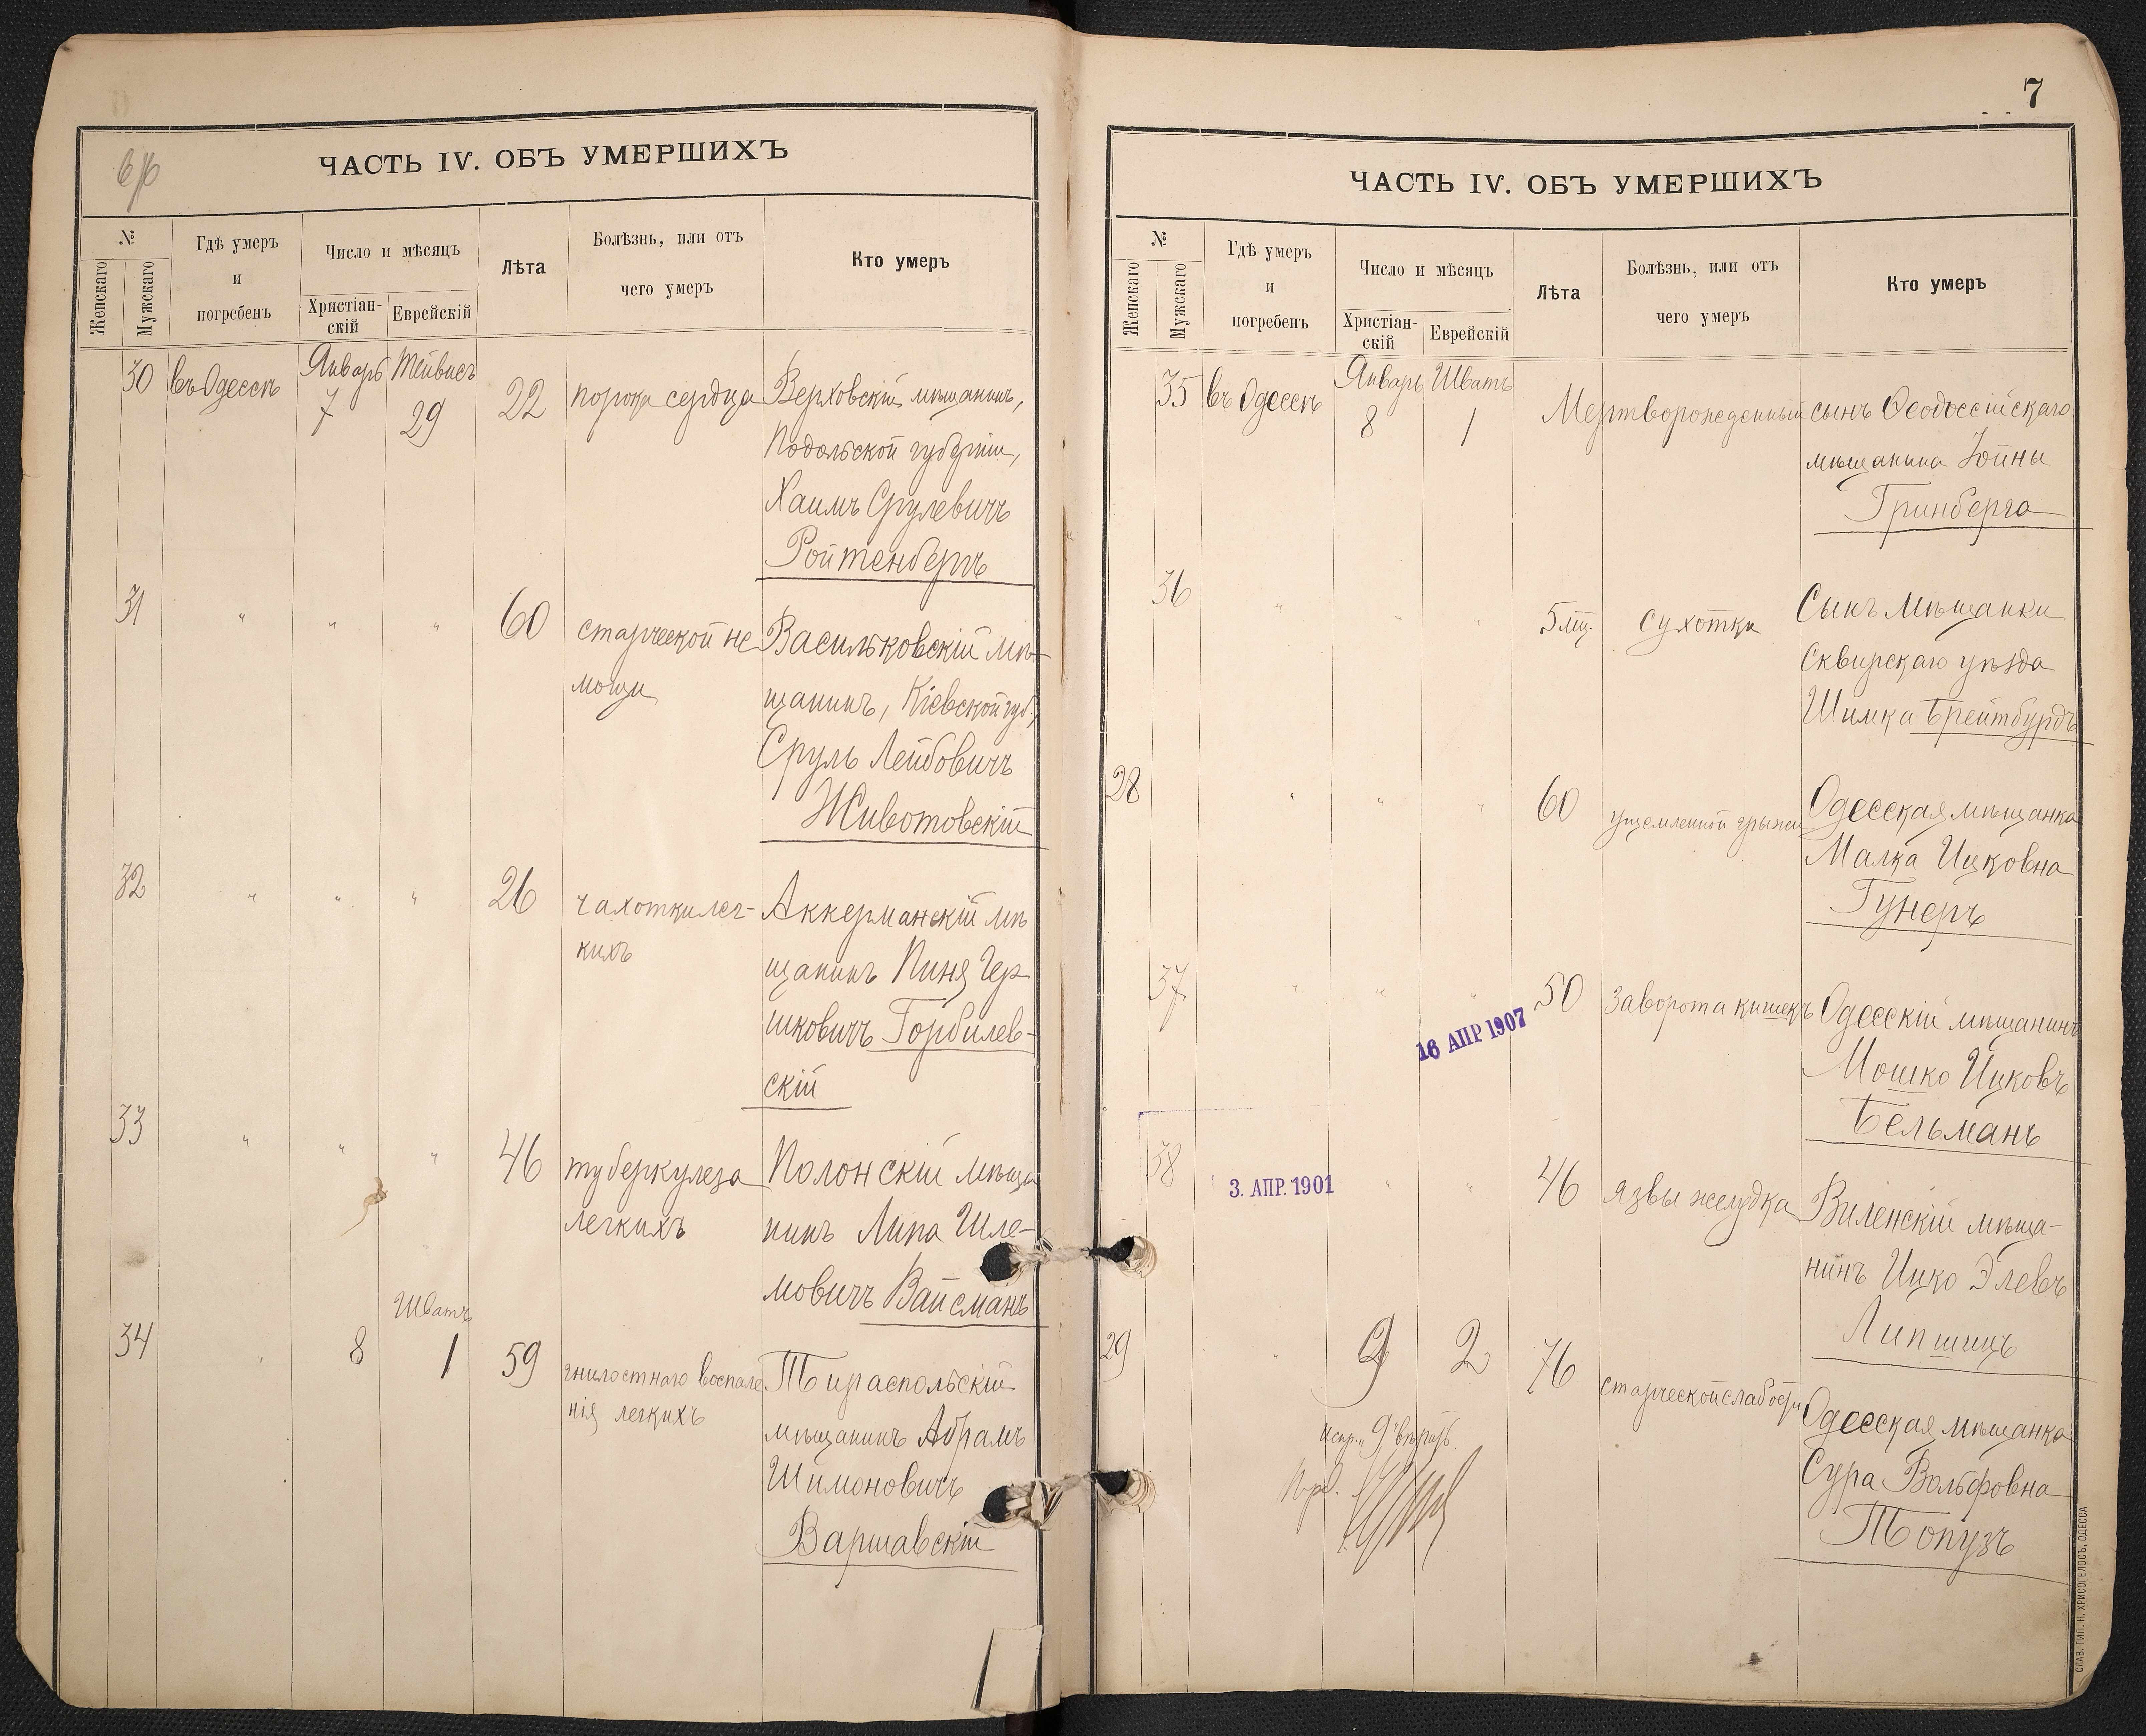 ЧАСТЬ IV. ОБЪ УМЕРШИХЪ
№
Женскаго
Мужскаго
Гдѣ умеръ
и
погребенъ
Число и мѣсяцъ
Христіан-
скій
Еврейскій
Лѣта
Болѣзнь, или отъ
чего умеръ
Кто умеръ
30 въ Одессѣ Январь 7 Тейвисъ 29 22 порока сердца Верховскій мѣщанинъ,
Подольской губерніи,
Хаимъ Срулевичъ
Ройтенбергъ
31 " " " 60 старческой не Васильковскій мѣ-
мощи щанинъ, Кіевской губ.,
Сруль Лейбовичъ
Животовскій
32 " " " 26 чахотки лег- Аккерманскій мѣ
кихъ щанинъ Пиня Гер
шковичъ Горбилев-
скій
33 " " " 46 туберкулеза Полонскій мѣща
легкихъ нинъ Липа Шле-
мовичъ Вайсманъ
Шватъ
34 " 8 1 59 гнилостнаго воспале Тираспольскій
нія легкихъ мѣщанинъ Абрамъ
Шимоновичъ
Варшавскій
7
ЧАСТЬ IV. ОБЪ УМЕРШИХЪ
№
Женскаго
Мужскаго
Гдѣ умеръ
и
погребенъ
Число и мѣсяцъ
Христіан-
скій
Еврейскій
Лѣта
Болѣзнь, или отъ
чего умеръ
Кто умеръ
35 въ Одессѣ Январь 8 Шватъ 1 Мертворожденный сынъ Ѳеодоссійскаго
мѣщанина Іойны
Гринберга
36 " " " 5 мц. сухотки Сынъ мѣщанки
Сквирскаго уѣзда
Шимка Брейтбурдъ
28 " " " 60 ущемленной грыжи Одесская мѣщанка
Малка Ицковна
Гунеръ
37 " " " 50 заворота кишекъ Одесскій мѣщанинъ
16 АПР 1907
Мошко Ицковъ
Бельманъ
38 " 3. АПР. 1901 " " 46 язвы желудка Виленскій мѣща-
нинъ Ицко Элевъ
Липшицъ
29 " 9 2 76 старческой слабости Одесская мѣщанка
испр. "9" вѣрить.
Сура Вольфовна
Топузъ
СЛАВ. ТИП. Н. ХРИСОГЕЛОСЪ, ОДЕССА